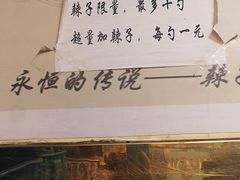 辣子限量，最多十勺
超量加辣子，每勺一元
永恒的传说——辣子